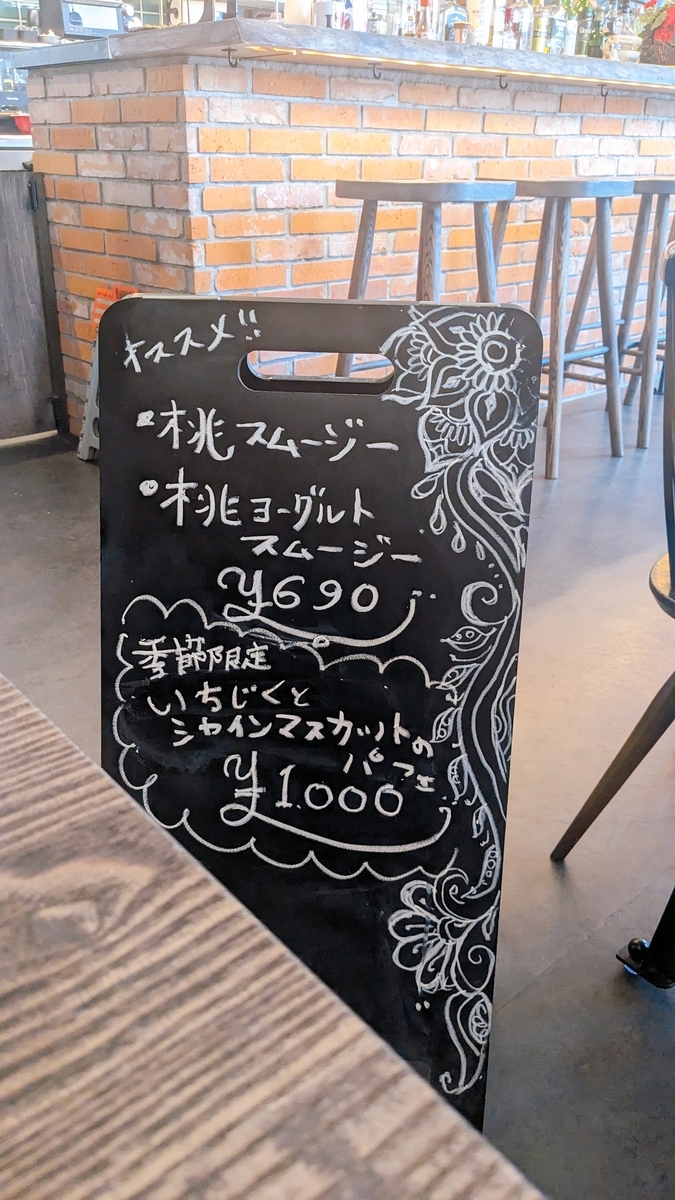 オススメ!!
•桃スムージー
•桃ヨーグルト
スムージー
¥690
季節限定
いちじくと
シャインマスカットの
パフェ
¥1.000